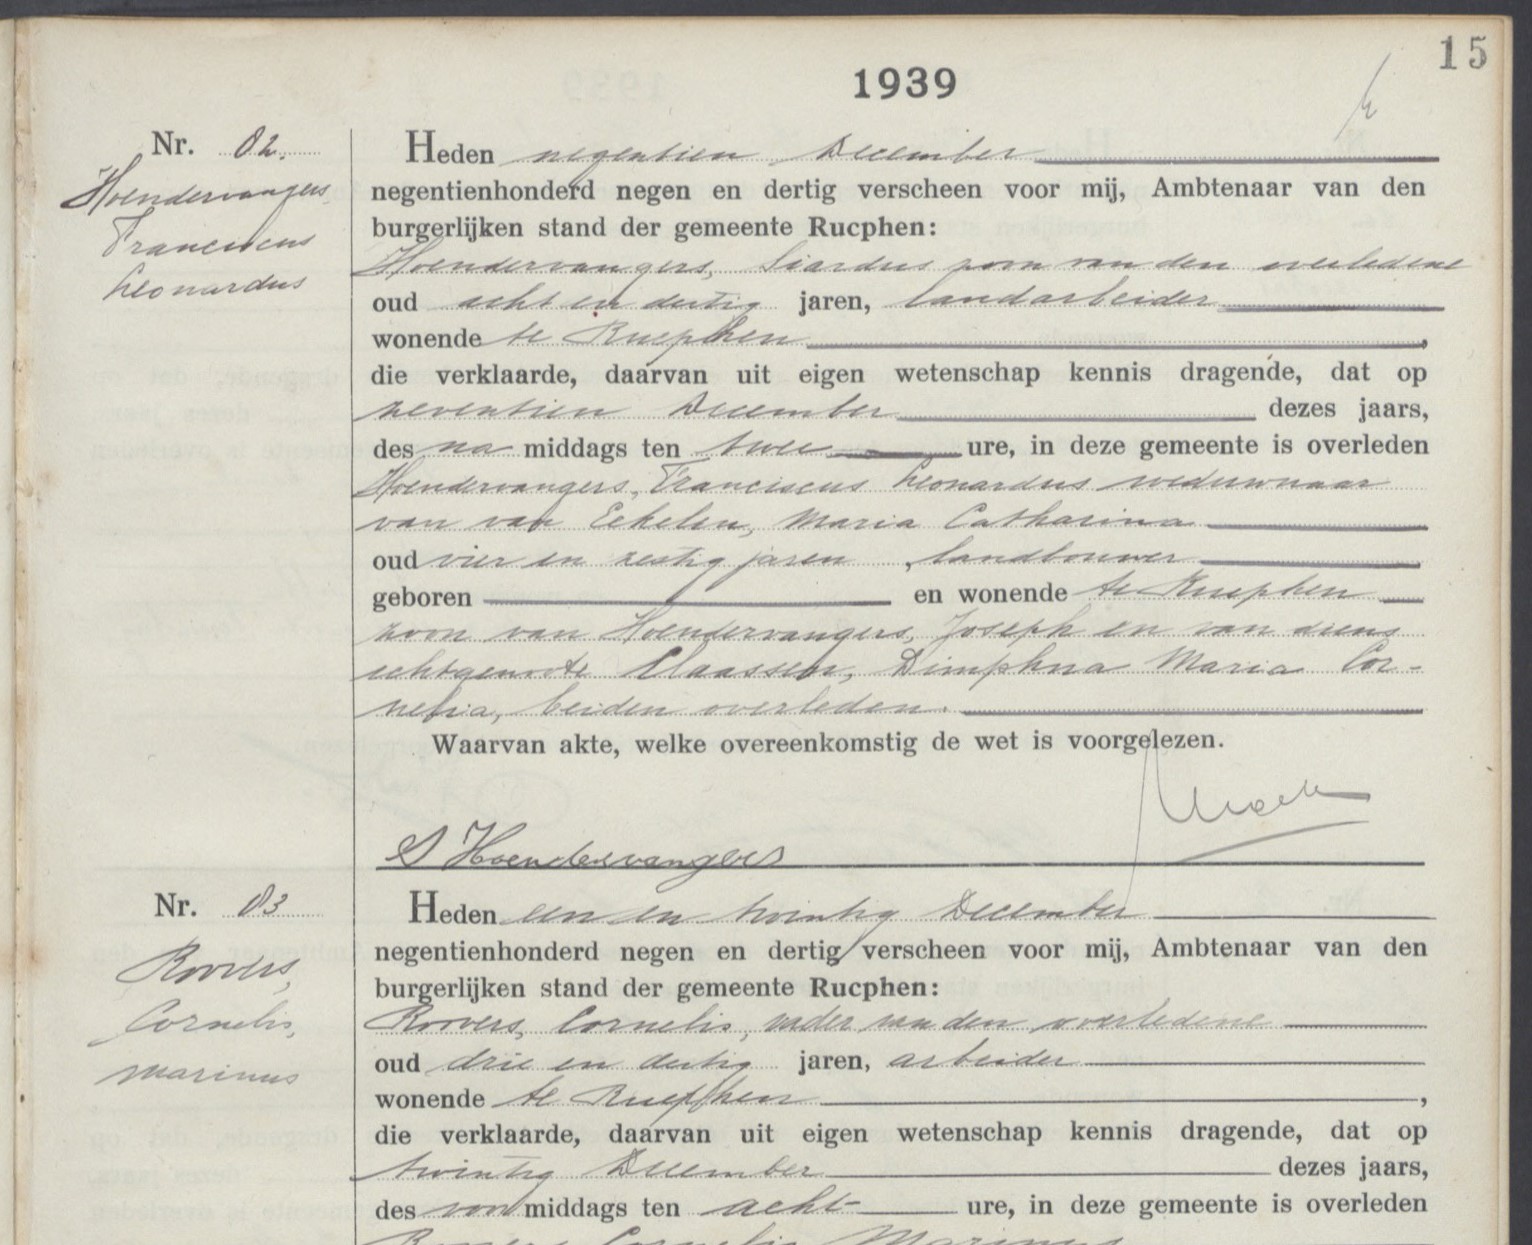 15
1939
Nr. 82.
Hoendervangers,
Franciscus
Leonardus
Heden negentien December
negentienhonderd negen en dertig verscheen voor mij, Ambtenaar van den
burgerlijken stand der gemeente Rucphen:
Hoendervangers, Siardus zoon van den overledene
oud acht en dertig jaren, landarbeider
wonende te Rucphen,
die verklaarde, daarvan uit eigen wetenschap kennis dragende, dat op
zeventien December dezes jaars,
des na middags ten twee ure, in deze gemeente is overleden
Hoendervangers, Franciscus Leonardus weduwnaar
van van Eekelen, Maria Catharina
oud vier en zestig jaren, landbouwer
geboren en wonende te Rucphen
zoon van Hoendervangers, Joseph en van diens
echtgenoote Claassen, Dimphna Maria Cor-
nelia, beiden overleden.
Waarvan akte, welke overeenkomstig de wet is voorgelezen.
S Hoendervangers
Nr. 83
Roovers,
Cornelis,
Marinus
Heden een en twintig December
negentienhonderd negen en dertig verscheen voor mij, Ambtenaar van den
burgerlijken stand der gemeente Rucphen:
Roovers, Cornelis, vader van den overledene
oud drie en dertig jaren, arbeider
wonende te Rucphen,
die verklaarde, daarvan uit eigen wetenschap kennis dragende, dat op
twintig December dezes jaars,
des voor middags ten acht ure, in deze gemeente is overleden
Roovers Cornelis Marinus